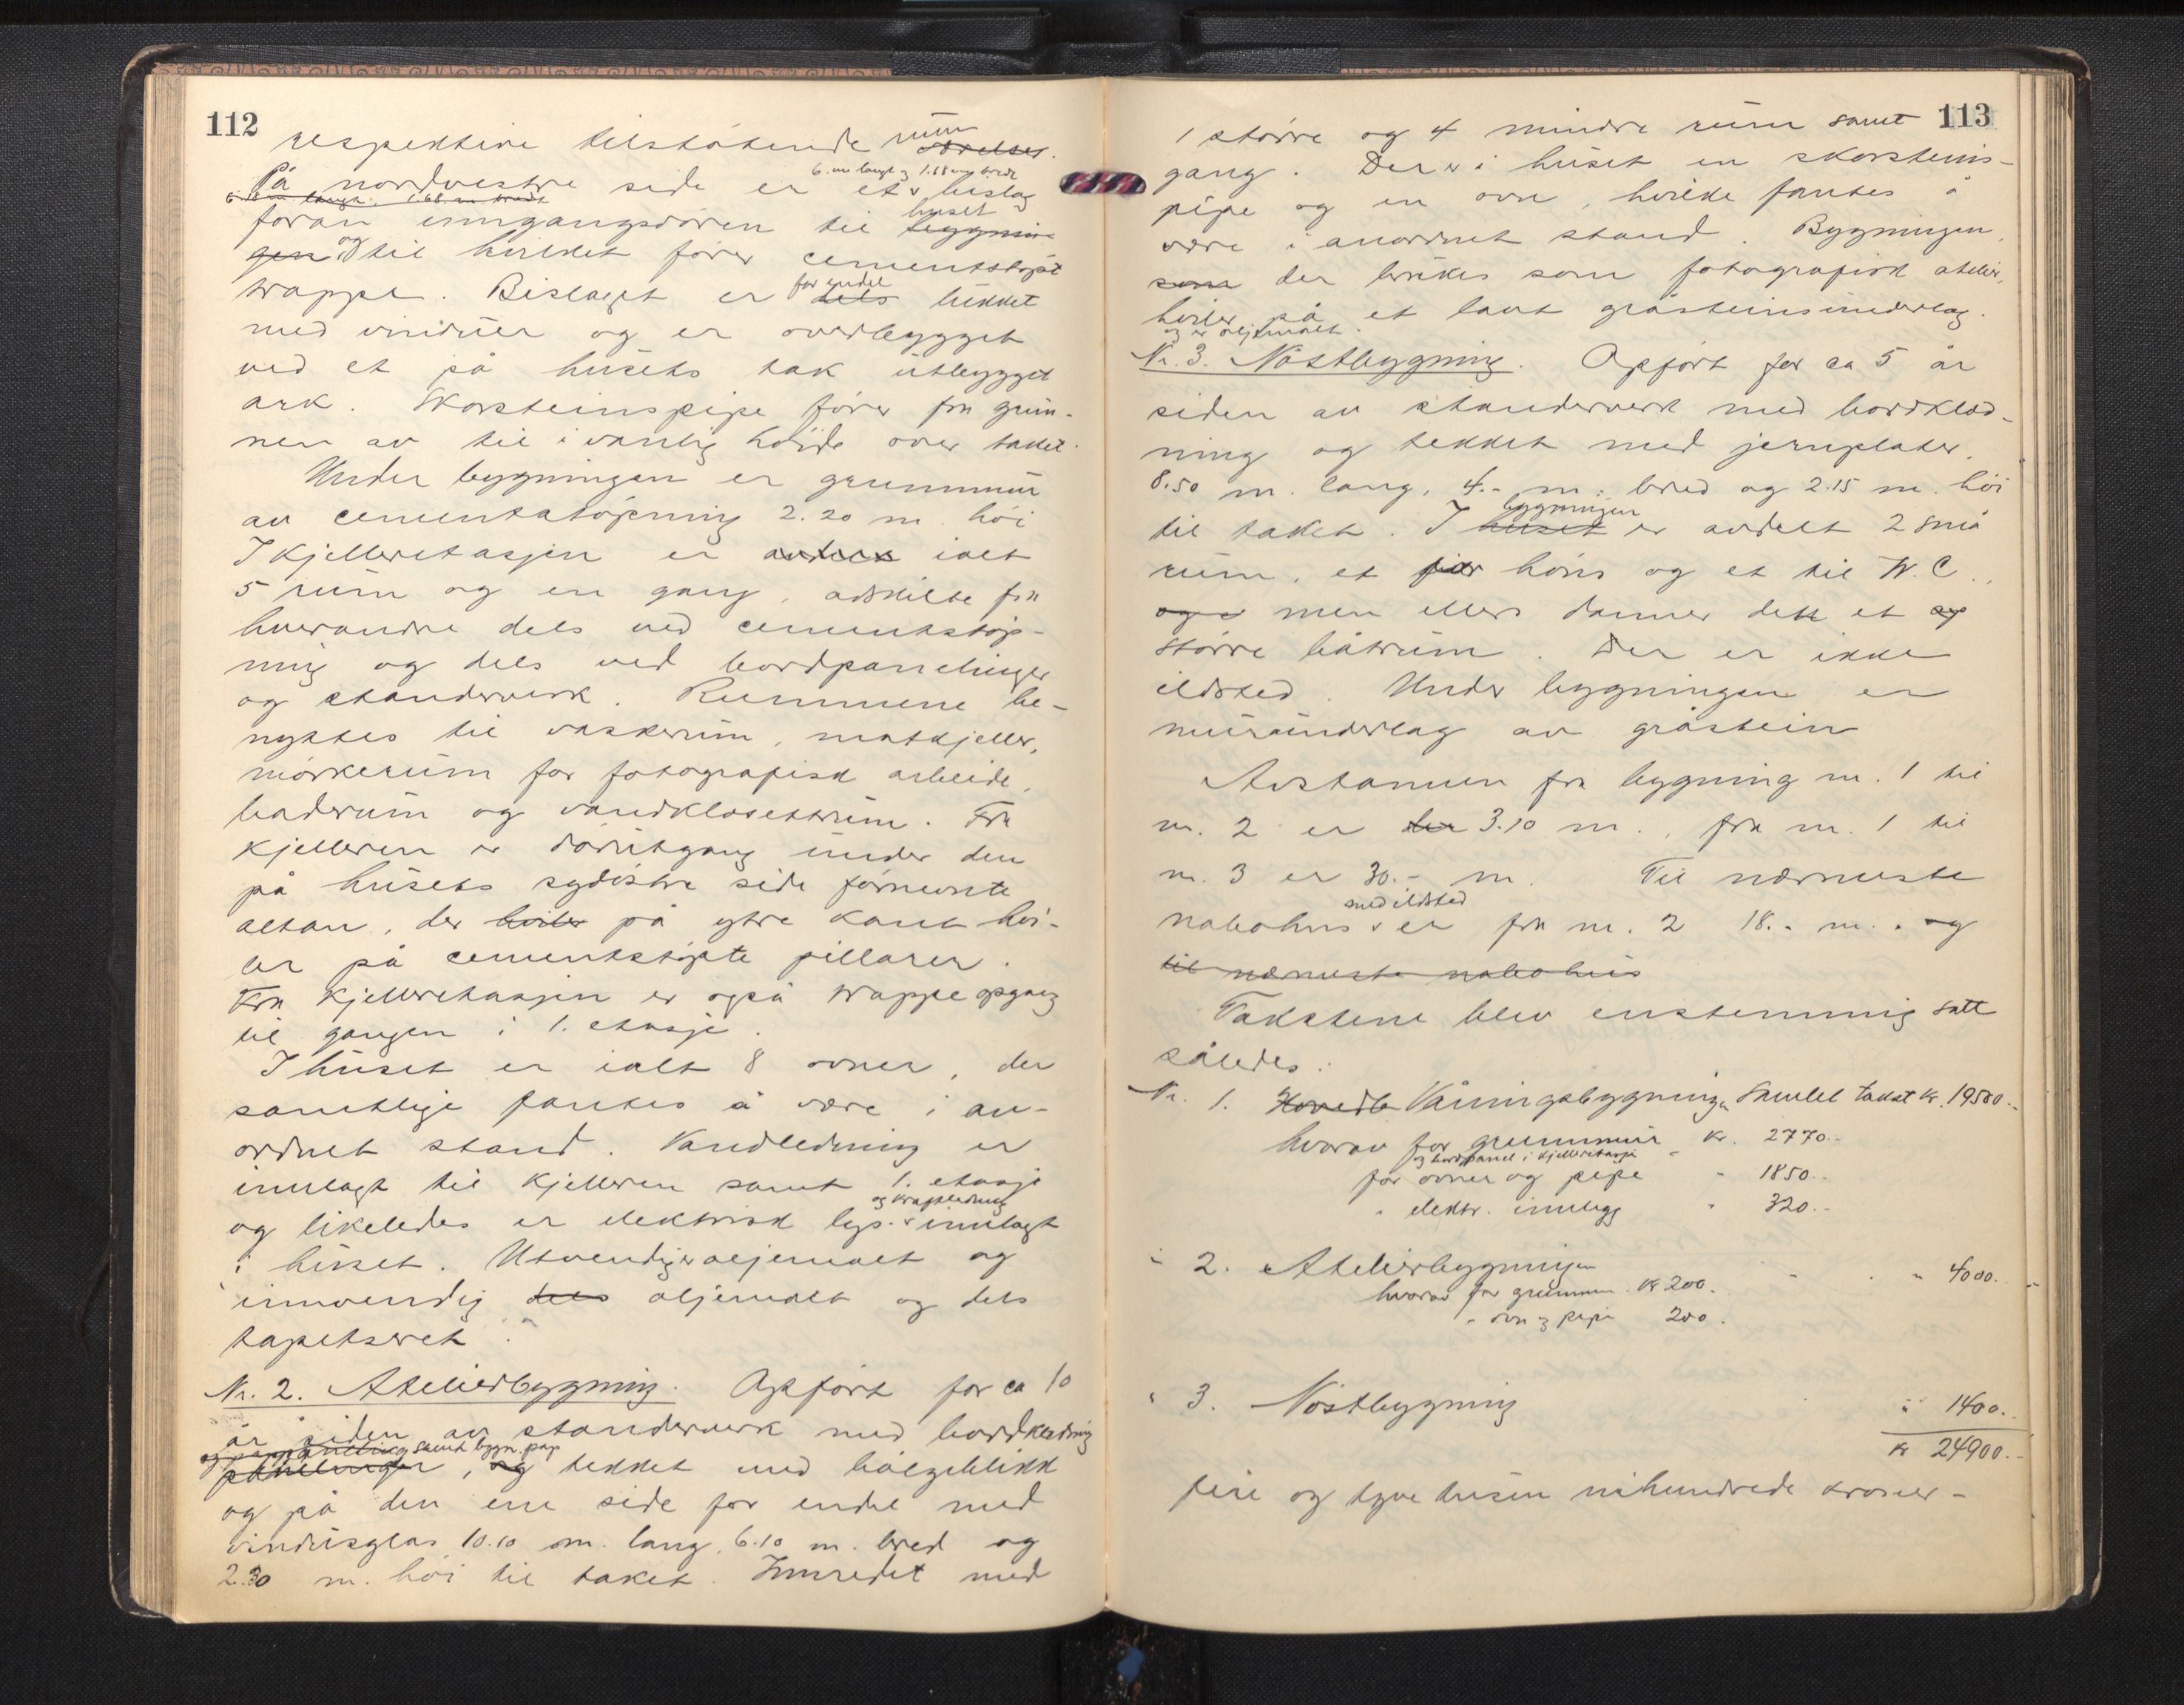 112
respektive tilstøtende rum værelser.
6. m langt og 1.68 m bredt
På nordvestre side er et bislag
6.10 m langt, 1.68 m bredt
foran inngangsdøren til huset byggnin-
gen og til hvilket fører cementstøpt
trappe. Bislaget er for endel dels lukket
med vinduer og er overbygget
ved et på husets tak utbygget
ark. Skorsteinspipe fører fra grun-
nen av til i vanlig høide over taket.
Under bygningen er grunnmur
av cementstøpning 2.20 m. høi
I kjelleretasjen er ialt
5 rum og en gang, adskilte fra
hverandre dels ved cementstøp-
ning og dels ved bordpanelinger
og standerverk. Rummene be-
nyttes til vaskerum, matkjeller,
mørkerum for fotografisk arbeide,
baderum og vandklosettrum. Fra
kjelleren er dørutgang under den
på husets sydøstre side førnevnte
altan, der hviler på ytre kant hvi-
ler på cementstøpte pillarer.
Fra kjelleretasjen er også trappeopgang
til gangen i 1. etasje.
I huset er ialt 8 ovner, der
samtlige fantes å være i an-
ordnet stand. Vandledning er
innlagt til kjelleren samt 1. etasje
og likeledes er elektrisk lys- og kraftledning innlagt
i huset. Utvendig er oljemalt og
innvendig dels oljemalt og dels
tapetseret.
Nr. 2. Atelierbygning. Opført for ca 10
år siden av standerverk med bordkledning
og samt bygn. pap
panelinger, og tekket med bølgeblikk
og på den ene side for endel med
vindusglas 10.10 m. lang, 6.10 m. bred og
2.30 m. høi til taket. Innredet med
113
1 større og 4 mindre rum samt
gang. Der er i huset en skorsteins-
pipe og en ovn, hvilke fantes å
være i anordnet stand. Bygningen,
som der brukes som fotografisk atelier,
hviler på et lavt gråsteinsunderlag.
og er oljemalt.
Nr. 3. Nøstbygning. Opført for ca 5 år
siden av standerverk med bordklæd-
ning og tekket med jernplater.
8.50 m. lang, 4.- m. bred og 2.15 m. høi
til taket. I bygningen huset er avdelt 2 små
rum, et for høns og et til W.C.,
også men ellers danner det et
større båtrum. Der er ikke
ildsted. Under bygningen er
murunderlag av gråstein
Avstannen fra bygning nr. 1 til
nr. 2 er 3.10 m., fra nr. 1 til
nr. 3 er 30.- m. Til nærmeste
nabohus med ildsted er fra nr. 2 18.- m. og
til nærmeste nabohus
Takstene blev enstemmig satt
således:
Nr. 1. Hovedb Våningsbygning Samlet takst kr. 19500.-
hvorav for grunnmur kr. 2770.-
og bordpanel i kjelleretasje
for ovner og pipe " 1850.-
" elektr. innlegg " 320.-
" 2. Atelierbygningen " " 4000.-
hvorav for grunnmur kr 200.
" ovn og pipe 200.
" 3. Nøstbygning " 1400.
kr 24900.-
fire og tyve tusen nihundrede kroner-